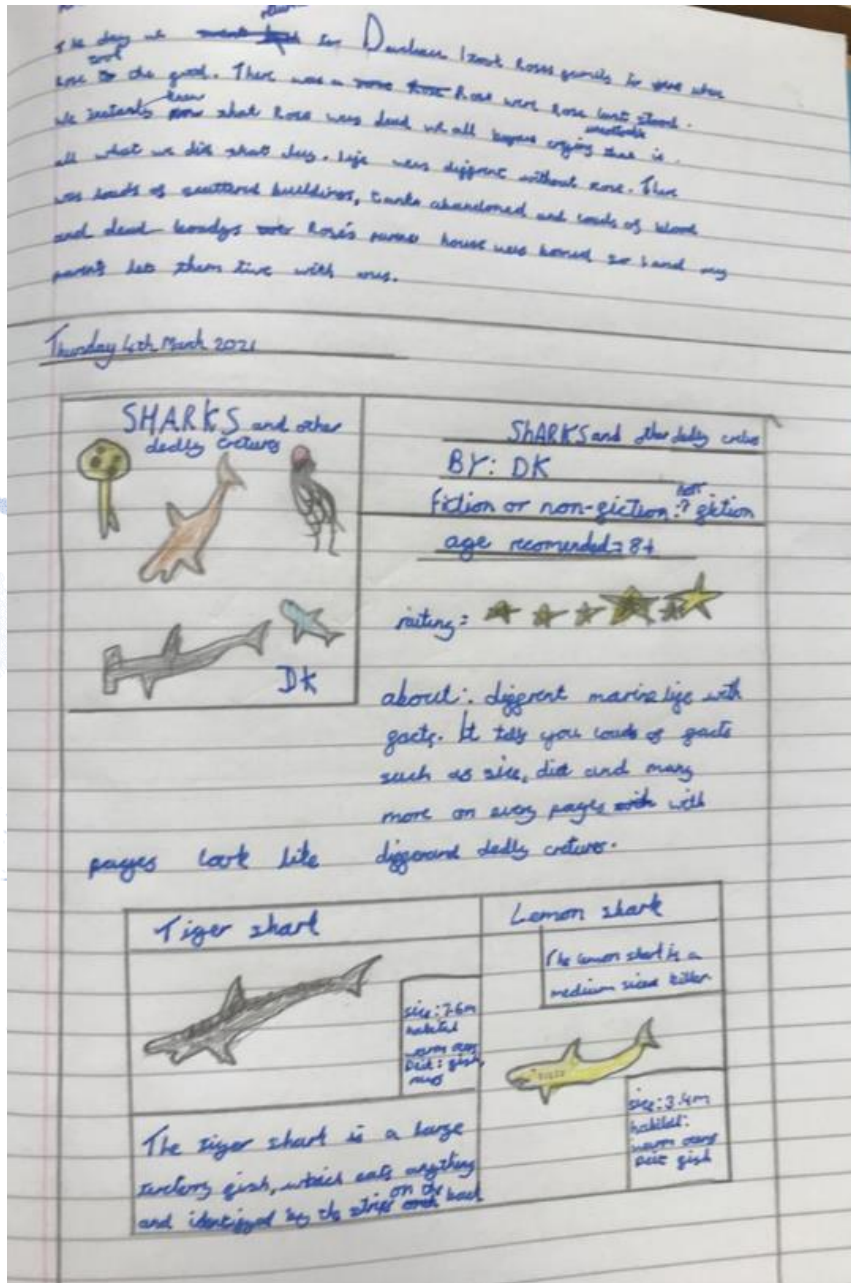 The day we return for Dunbar I took Roses family to were where
Rose took to the good. There was a Rose were Rose last stood.
We instantly knew that Rose was dead we all began crying that is
all what we did that day. Life was diffrent without rose. There
was loads of scattered buildings, tanks abandoned and loads of blood
and dead boadys over Rose's parner house was bomed so I and my
parent lets them live with ous.
Thursday 4th March 2021
SHARKS and other
dedly cretures
DK
ShARKS and other dedly cretures
BY: DK
fiction or non-fiction:? non fiction
age recomended= 8+
raiting=
about: different marine life with
facts. It tells you loads of facts
such as sice, diet and many
more on every pages with
differand dedly cretures.
pages look like
Tiger shark
sice: 7.6m
habitat
warm oceans
Deit: fish,
The tiger shark is a large
fish, which eats anything
and identifyed by the strips on the back
Lemon shark
The lemon shark is a
medium siced killer
sice: 3.4m
habitet:
warm oceans
Deit fish